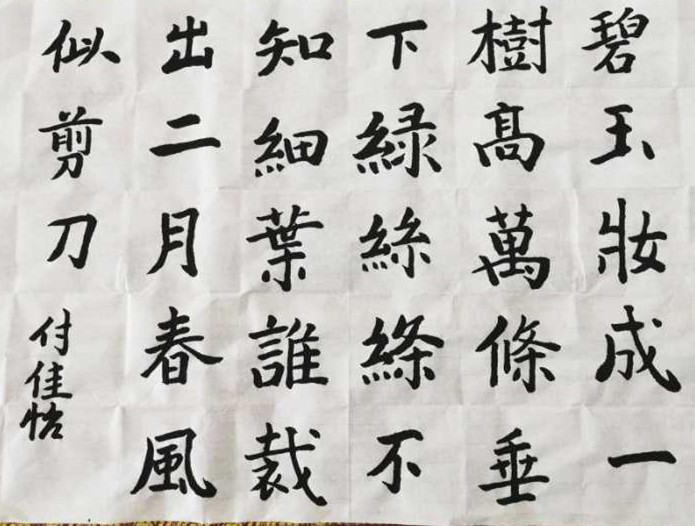 碧玉妝成一
樹高萬條垂
下緑絲縧不
知細葉誰裁
出二月春風
似剪刀
付佳悟